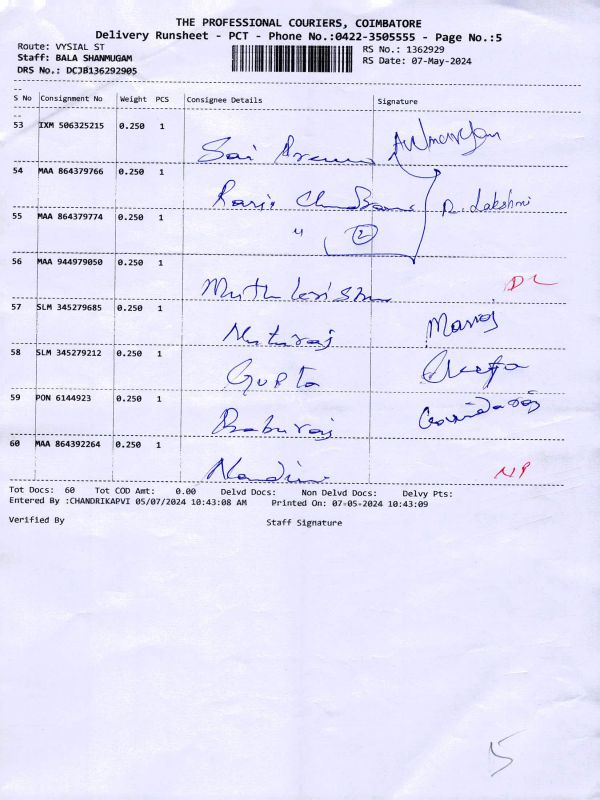 THE PROFESSIONAL COURIERS, COIMBATORE
Delivery Runsheet - PCT - Phone No.:0422-3505555 - Page No.:5
Route: VYSIAL ST RS No.: 1362929
Staff: BALA SHANMUGAM RS Date: 07-May-2024
DRS No.: DCJB136292905
S No Consignment No Weight PCS Consignee Details Signature
53 IXM 506325215 0.250 1
Sai
54 MAA 864379766 0.250 1
R. Lakshmi
55 MAA 864379774 0.250 1
" 2
56 MAA 944979050 0.250 1
DL
57 SLM 345279685 0.250 1
Muturaj Manoj
58 SLM 345279212 0.250 1
Gupta
59 PON 6144923 0.250 1
Baburaj Govindaraj
60 MAA 864392264 0.250 1
NP
Tot Docs: 60 Tot COD Amt: 0.00 Delvd Docs: Non Delvd Docs: Delvy Pts:
Entered By :CHANDRIKAPVI 05/07/2024 10:43:08 AM Printed On: 07-05-2024 10:43:09
Verified By Staff Signature
5